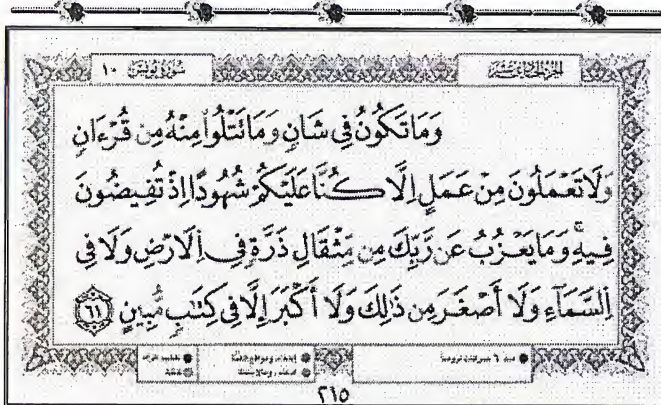 الجزء الحادي عشر
سورة يونس ١٠
وَمَا تَكُونُ فِي شَانٍ وَمَا تَتْلُوا۟ مِنْهُ مِن قُرْءَانٍ
وَلَا تَعْمَلُونَ مِنْ عَمَلٍ اِلَّا كُنَّا عَلَيْكُمْ شُهُودًا اِذْ تُفِيضُونَ
فِيهِۚ وَمَا يَعْزُبُ عَن رَّبِّكَ مِن مِّثْقَالِ ذَرَّةٍ فِي اِلَارْضِ وَلَا فِي
اِلسَّمَآءِ وَلَا أَصْغَرَ مِن ذَٰلِكَ وَلَا أَكْبَرَ إِلَّا فِي كِتَٰبٍ مُّبِينٍ ٦١
٢١٥